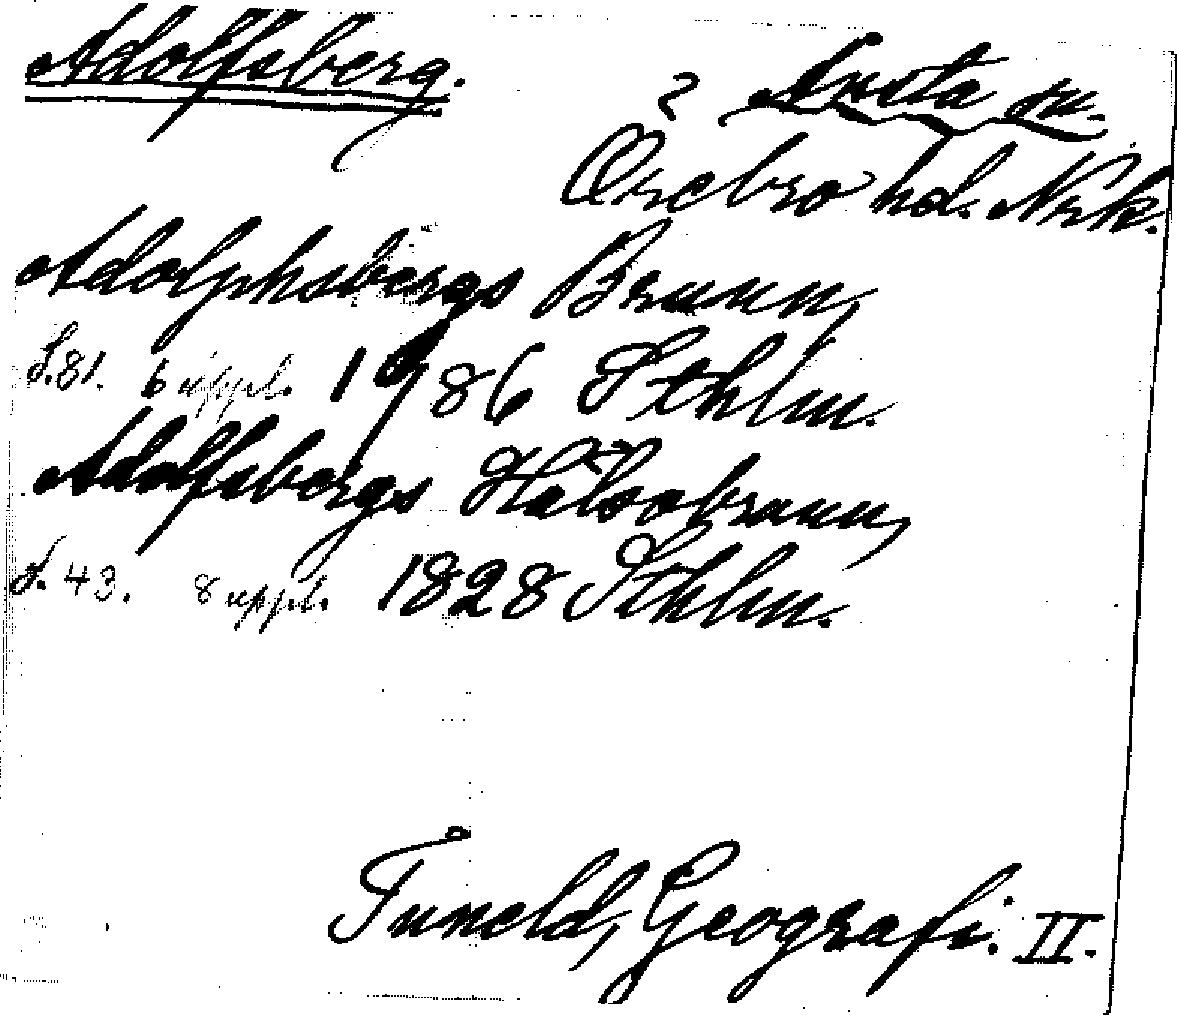 Adolfsberg.
? Ånsta sn.
Örebro hd. Nrk.
Adolphsbergs Brunn,
S.81. 6 uppl. 1786 Sthlm.
Adolfsbergs Hälsobrunn,
S. 43. 8 uppl. 1828 Sthlm.
Tuneld, Geografi. II.